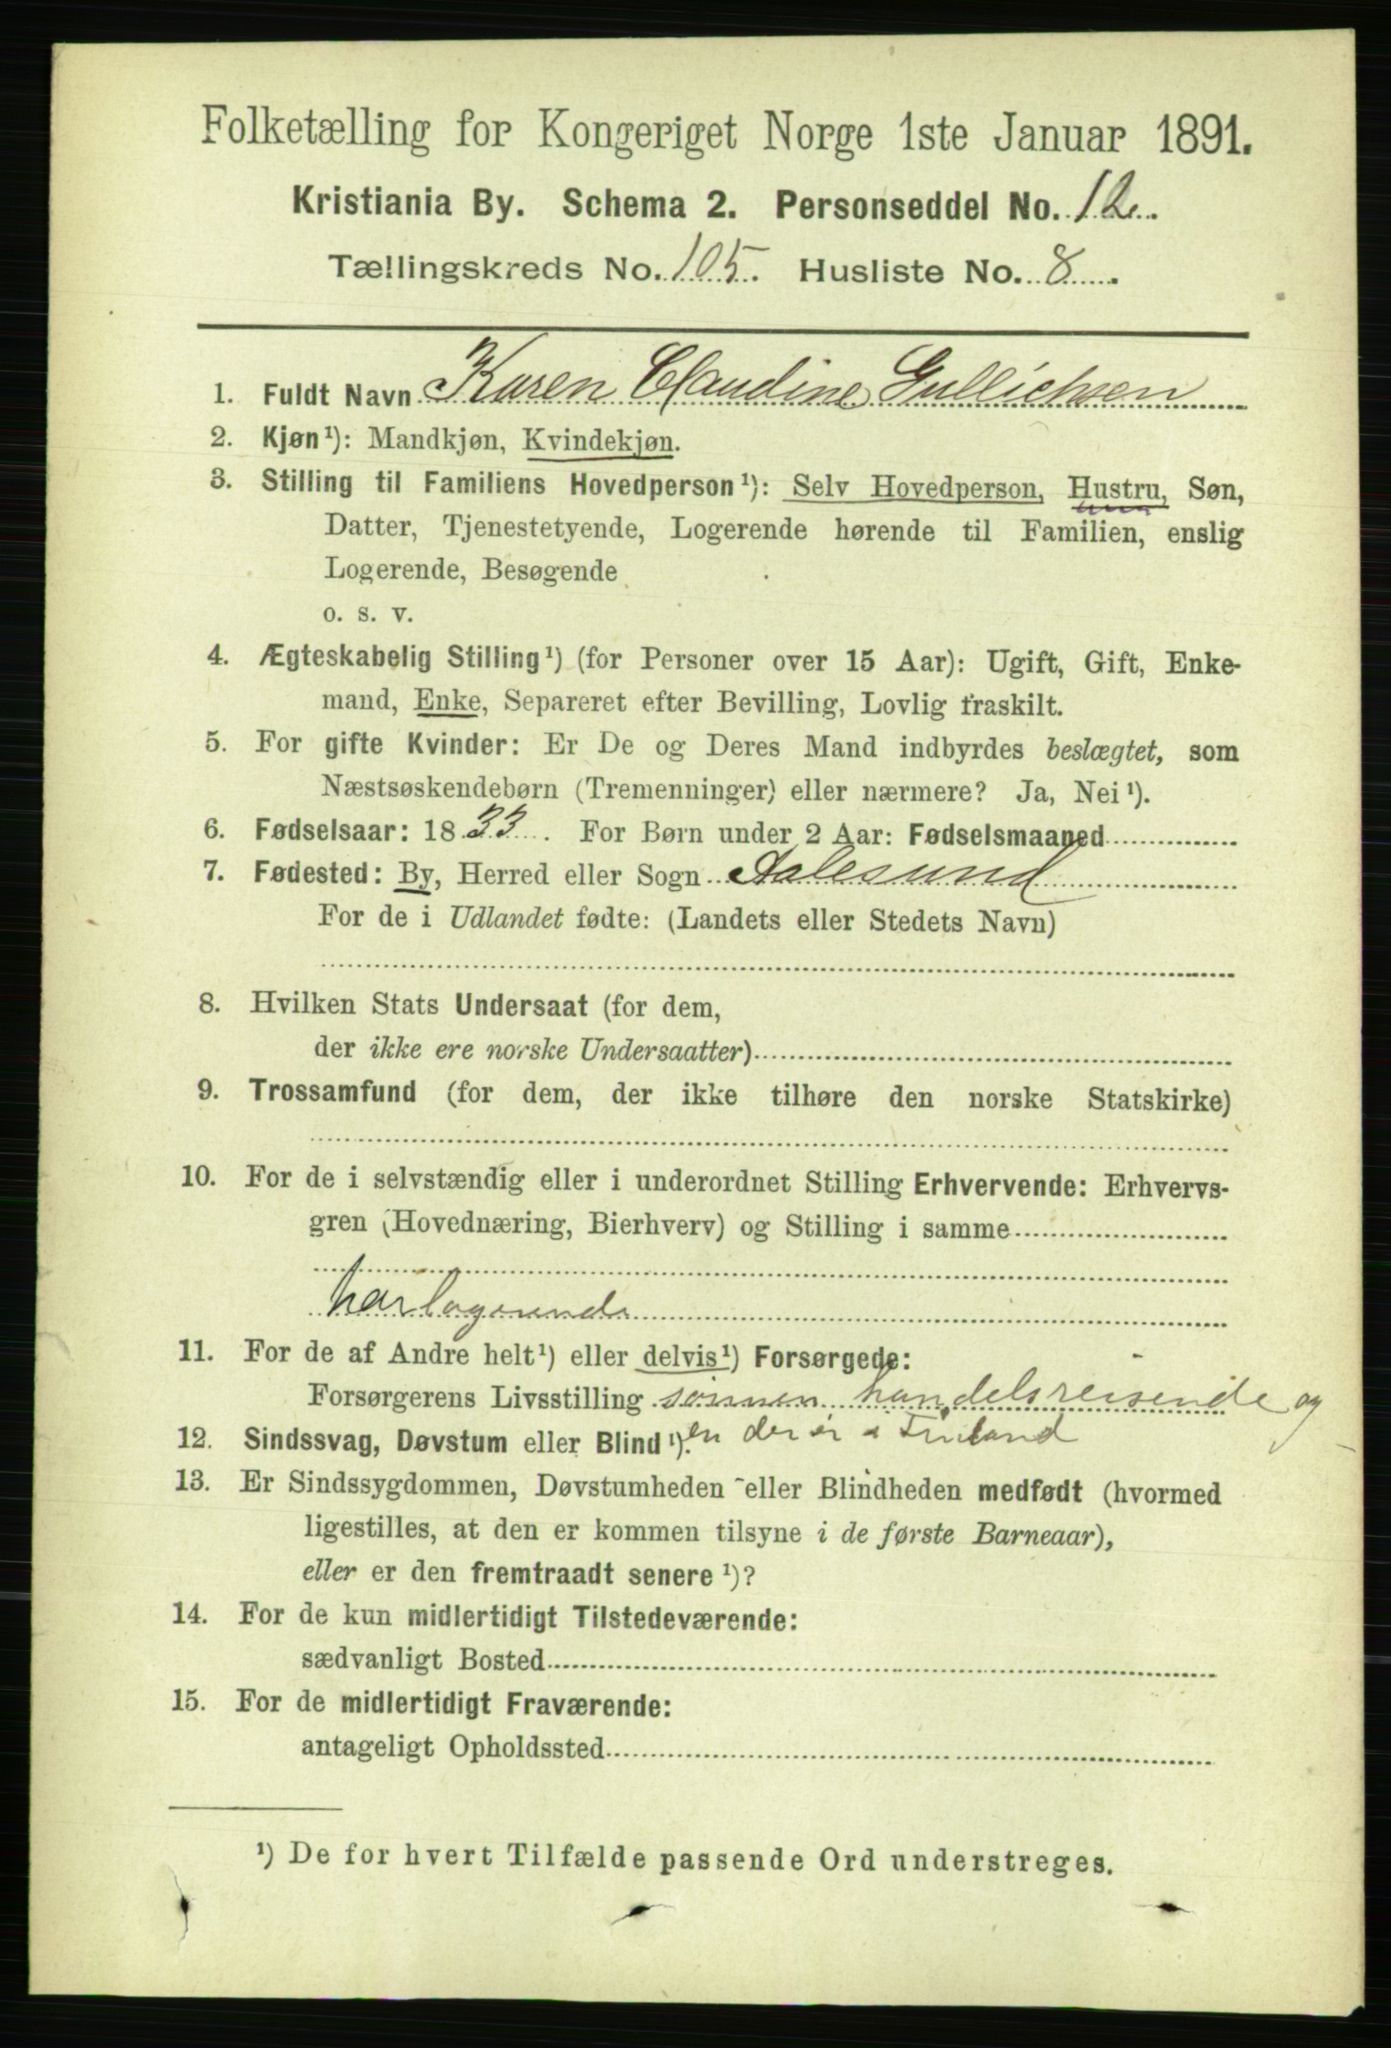 Folketælling for Kongeriget Norge 1ste Januar 1891.
Kristiania By. Schema 2. Personseddel No. 12.
Tællingskreds No. 105. Husliste No. 8.
1. Fuldt Navn Karen Claudine Gullichsen
2. Kjøn¹): Mandkjøn, Kvindekjøn.
3. Stilling til Familiens Hovedperson¹): Selv Hovedperson, Hustru, Søn,
Datter, Tjenestetyende, Logerende hørende til Familien, enslig
Logerende, Besøgende
o. s. v.
4. Ægteskabelig Stilling¹) (for Personer over 15 Aar): Ugift, Gift, Enke-
mand, Enke, Separeret efter Bevilling, Lovlig fraskilt.
5. For gifte Kvinder: Er De og Deres Mand indbyrdes beslægtet, som
Næstsøskendebørn (Tremenninger) eller nærmere? Ja, Nei¹).
6. Fødselsaar: 1833. For Børn under 2 Aar: Fødselsmaaned
7. Fødested: By, Herred eller Sogn Aalesund
For de i Udlandet fødte: (Landets eller Stedets Navn)
8. Hvilken Stats Undersaat (for dem,
der ikke ere norske Undersaatter)
9. Trossamfund (for dem, der ikke tilhøre den norske Statskirke)
10. For de i selvstændig eller i underordnet Stilling Erhvervende: Erhvervs-
gren (Hovednæring, Bierhverv) og Stilling i samme
har logerende
11. For de af Andre helt¹) eller delvis¹) Forsørgede:
Forsørgerens Livsstilling sønnen handelsreisende og
12. Sindssvag, Døvstum eller Blind¹). en der er i Finland
13. Er Sindssygdommen, Døvstumheden eller Blindheden medfødt (hvormed
ligestilles, at den er kommen tilsyne i de første Barneaar),
eller er den fremtraadt senere¹)?
14. For de kun midlertidigt Tilstedeværende:
sædvanligt Bosted
15. For de midlertidigt Fraværende:
antageligt Opholdssted
¹) De for hvert Tilfælde passende Ord understreges.